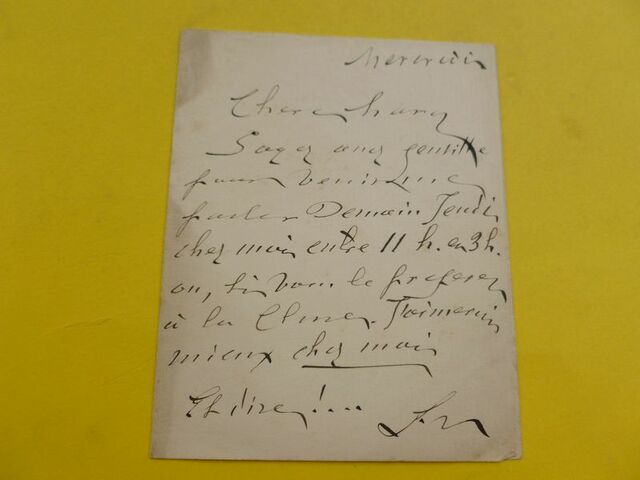 Mercredi
Chere Mary
Soyez assez gentille
pour venir me
parler Demain Jeudi
chez moi entre 11 h. et 3 h.
ou, si vous le preferez
à la J'aimerais
mieux chez moi